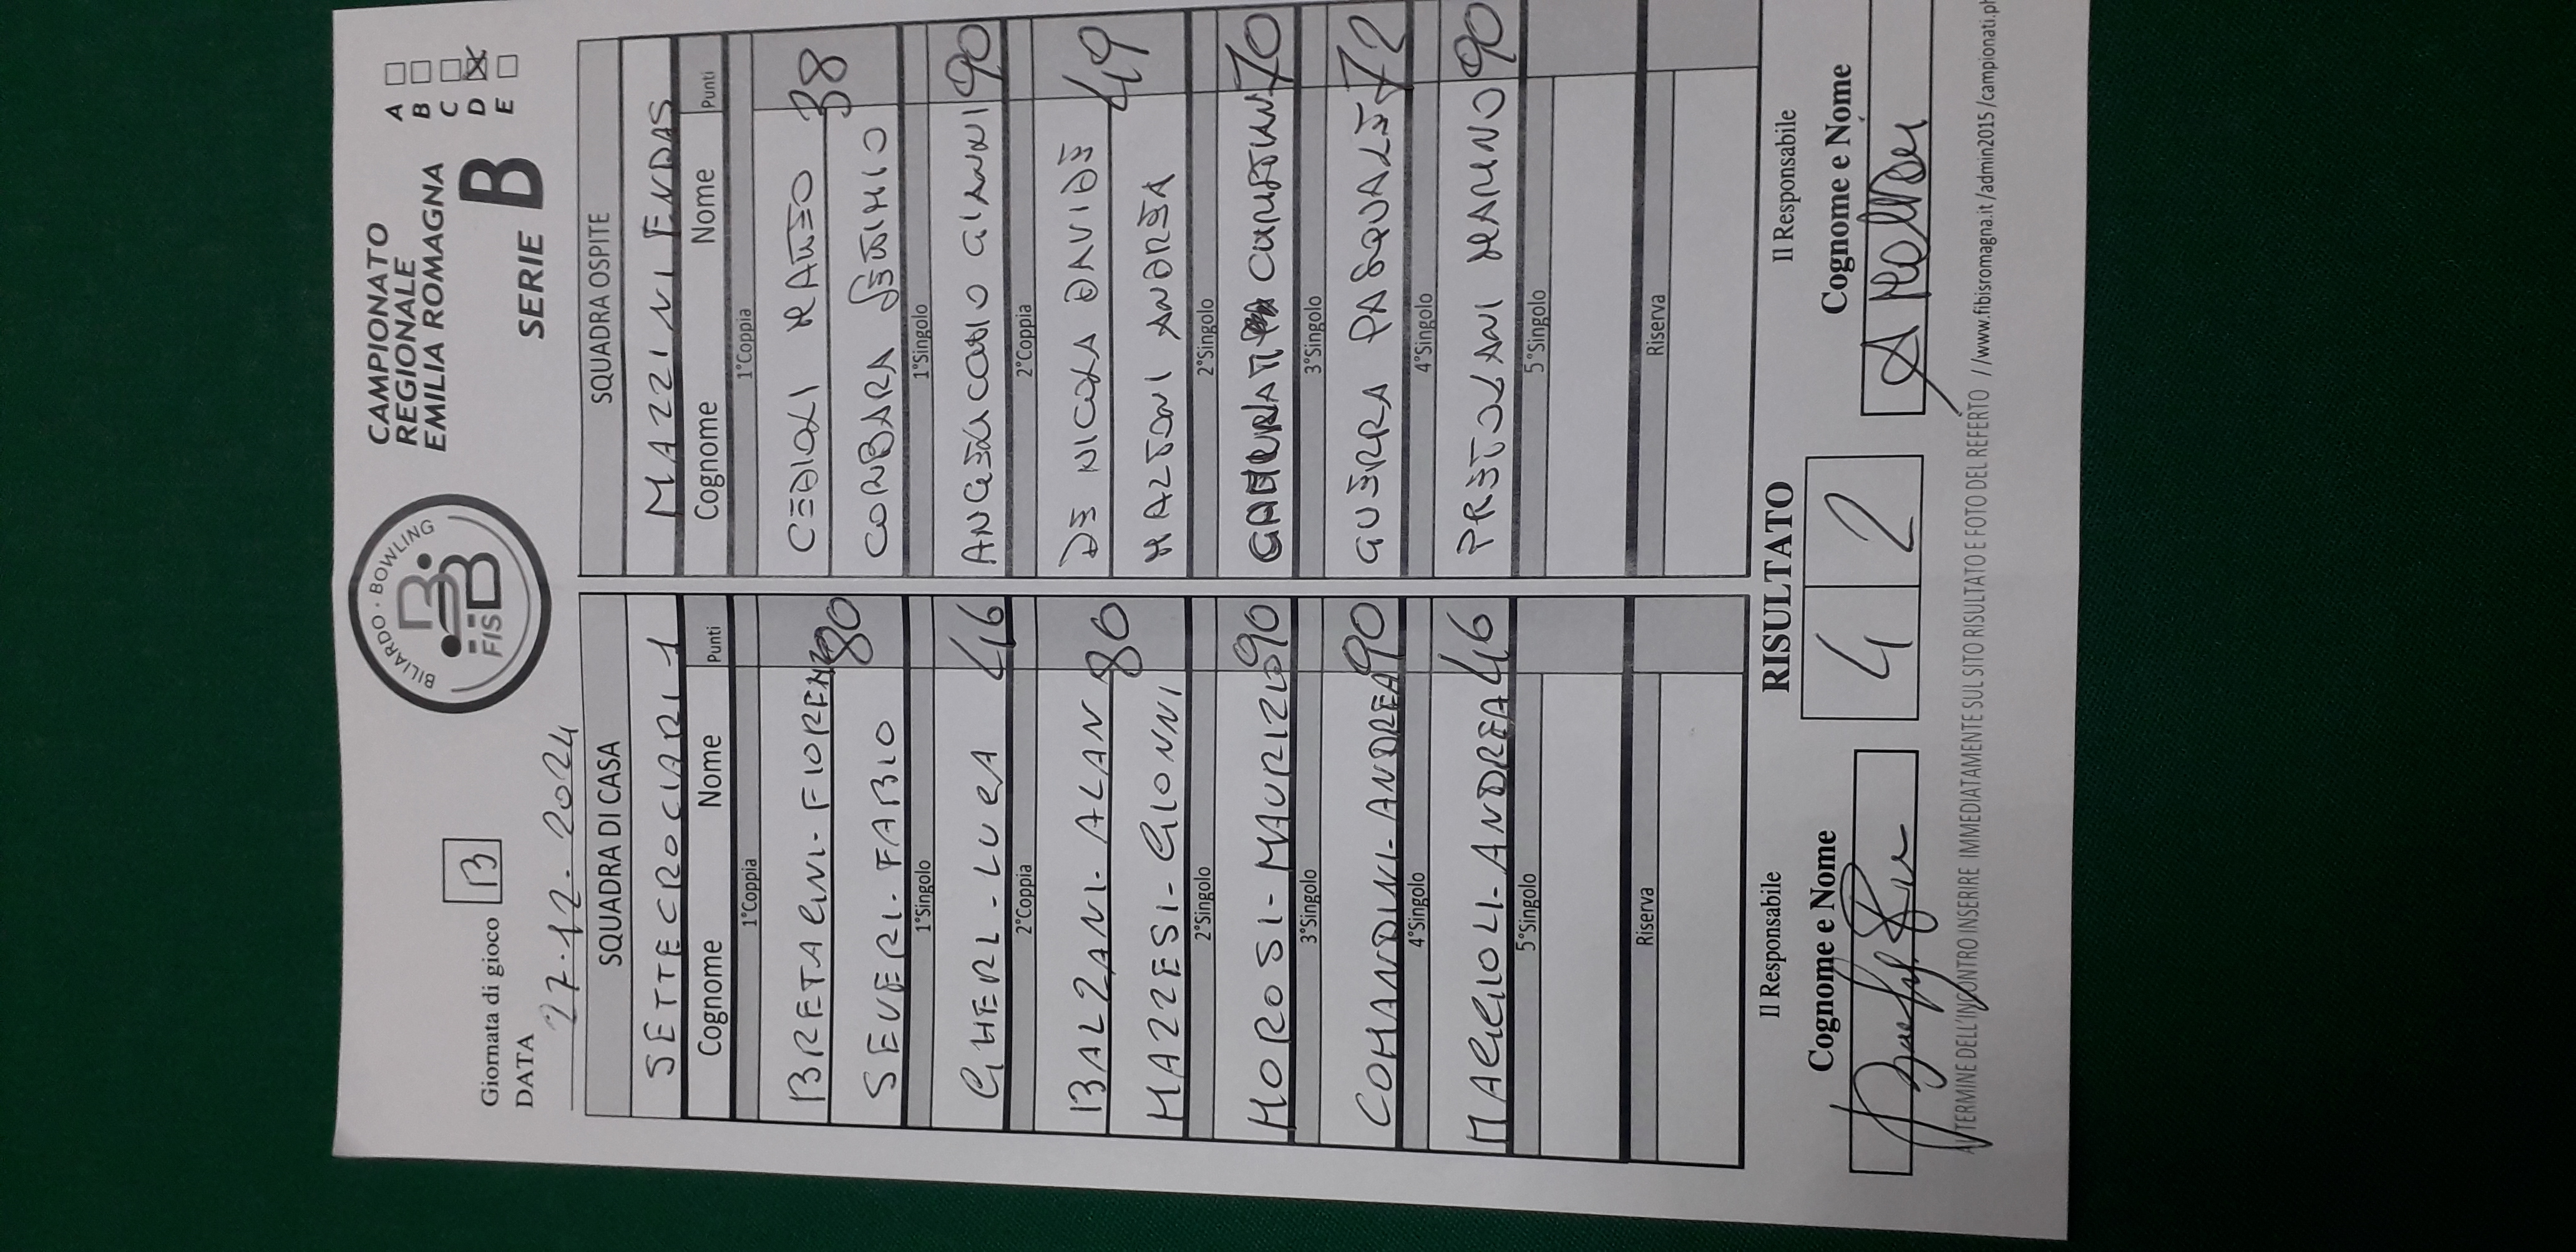 BILIARDO · BOWLING
FISBB
CAMPIONATO
REGIONALE
EMILIA ROMAGNA
SERIE B
A
B
C
D
E
Giornata di gioco B
DATA
27.12.2024
SQUADRA DI CASA
SETTECROCIARI 1
Cognome Nome Punti
1°Coppia
BRETAGNI-FIORENZO 80
SEVERI-FABIO
1°Singolo
GHERI-LUCA 46
2°Coppia
BALZANI-ALAN 80
MAZZESI-GIONNI
2°Singolo
MOROSI-MAURIZIO 90
3°Singolo
COMANDINI-ANDREA 90
4°Singolo
MAGGIOLI-ANDREA 46
5°Singolo
Riserva
SQUADRA OSPITE
MAZZINI ENDAS
Cognome Nome Punti
1°Coppia
CEDIOLI MATTEO 38
CORBARA SETTIMIO
1°Singolo
ANGELUCCIO GIANNI 90
2°Coppia
DE NICOLA DAVIDE 49
MALTONI ANDREA
2°Singolo
70
3°Singolo
GUERRA PASQUALE 72
4°Singolo
PRETOLANI MARINO 90
5°Singolo
Riserva
Il Responsabile
Cognome e Nome
RISULTATO
4 2
Il Responsabile
Cognome e Nome
A TERMINE DELL'INCONTRO INSERIRE IMMEDIATAMENTE SUL SITO RISULTATO E FOTO DEL REFERTO //www.fibisromagna.it/admin2015/campionati.ph